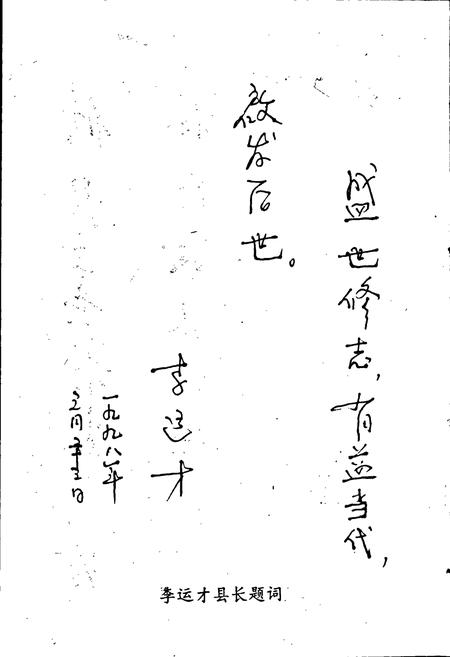 盛世修志，有益当代，
启发后世。
李运才
一九九八年
李运才县长题词